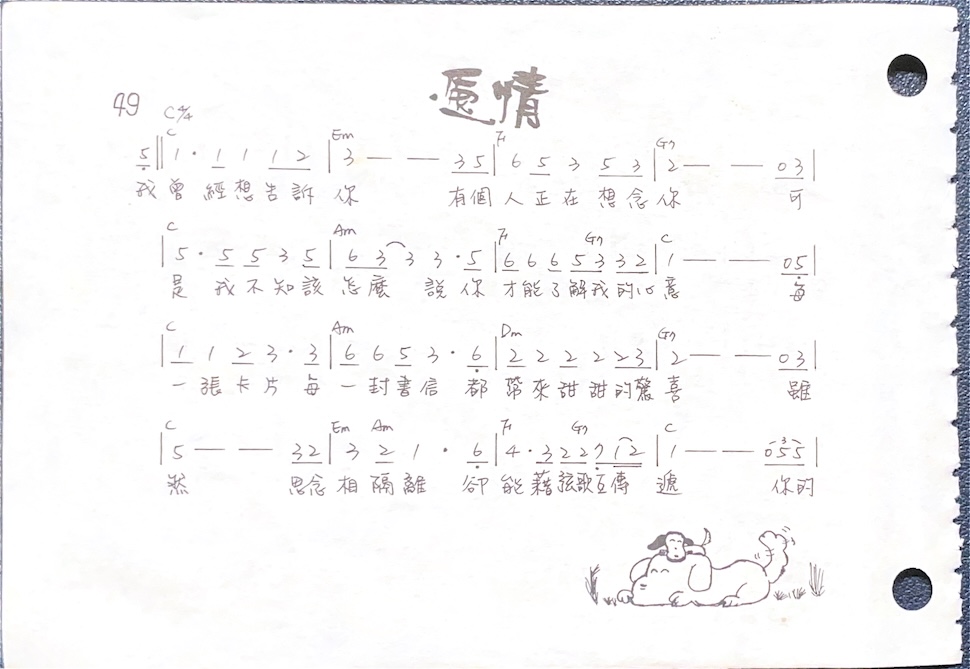 情
49 C 4/4
C Em F G7
5 || 1 · 1 1 1 2 | 3 — — 3 5 | 6 5 3 5 3 | 2 — — 0 3 |
我曾經想告訴你 有個人正在想念你 可
C Am F G7 C
5 · 5 5 3 5 | 6 3 3 3 · 5 | 6 6 6 5 3 3 2 | 1 — — 0 5 |
是 我不知該怎麼 說你才能了解我的心意 每
C Am Dm G7
| 1 1 2 3 · 3 | 6 6 5 3 · 6 | 2 2 2 2 2 3 | 2 — — 0 3 |
一張卡片每一封書信都帶來甜甜的驚喜 雖
C Em Am F G7 C
| 5 — — 3 2 | 3 2 1 · 6 | 4 · 3 2 2 7 1 2 | 1 — — 0 5 5 |
然 思念相隔離 卻能藉弦歌互傳遞 你的